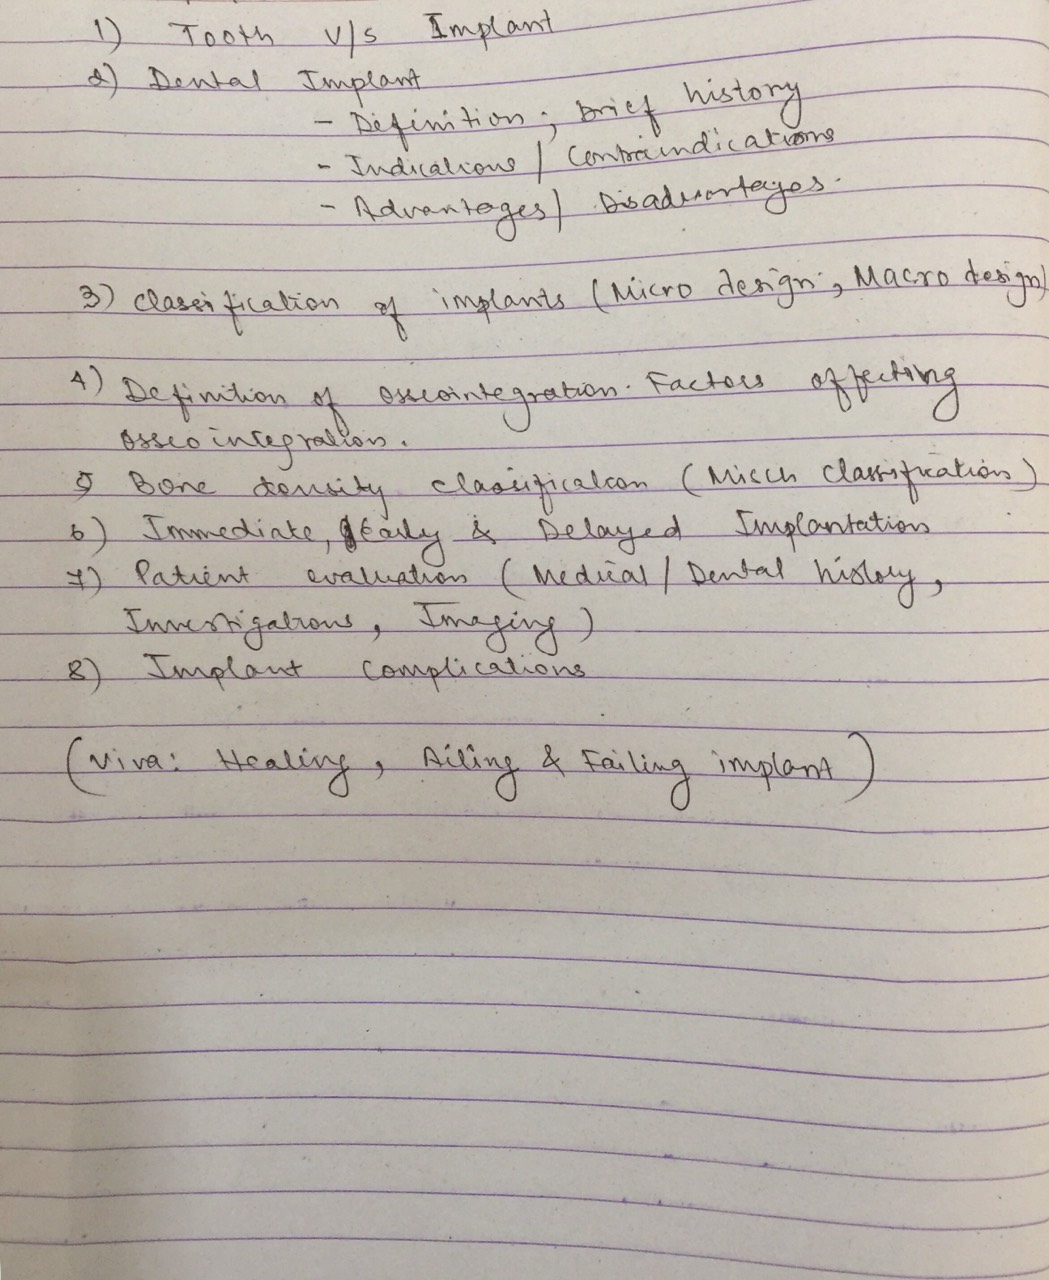 1) Tooth v/s Implant
2) Dental Implant
- Definition; brief history
- Indications / Contraindications
- Advantages / Disadvantages.
3) Classification of implants (Micro design; Macro design)
4) Definition of osseointegration. Factors affecting
osseointegration.
5 Bone density classification (Misch Classification)
6) Immediate, Early & Delayed Implantation
7) Patient evaluation (Medical / Dental history,
Investigations, Imaging)
8) Implant Complications
(Viva: Healing, Ailing & Failing implant)